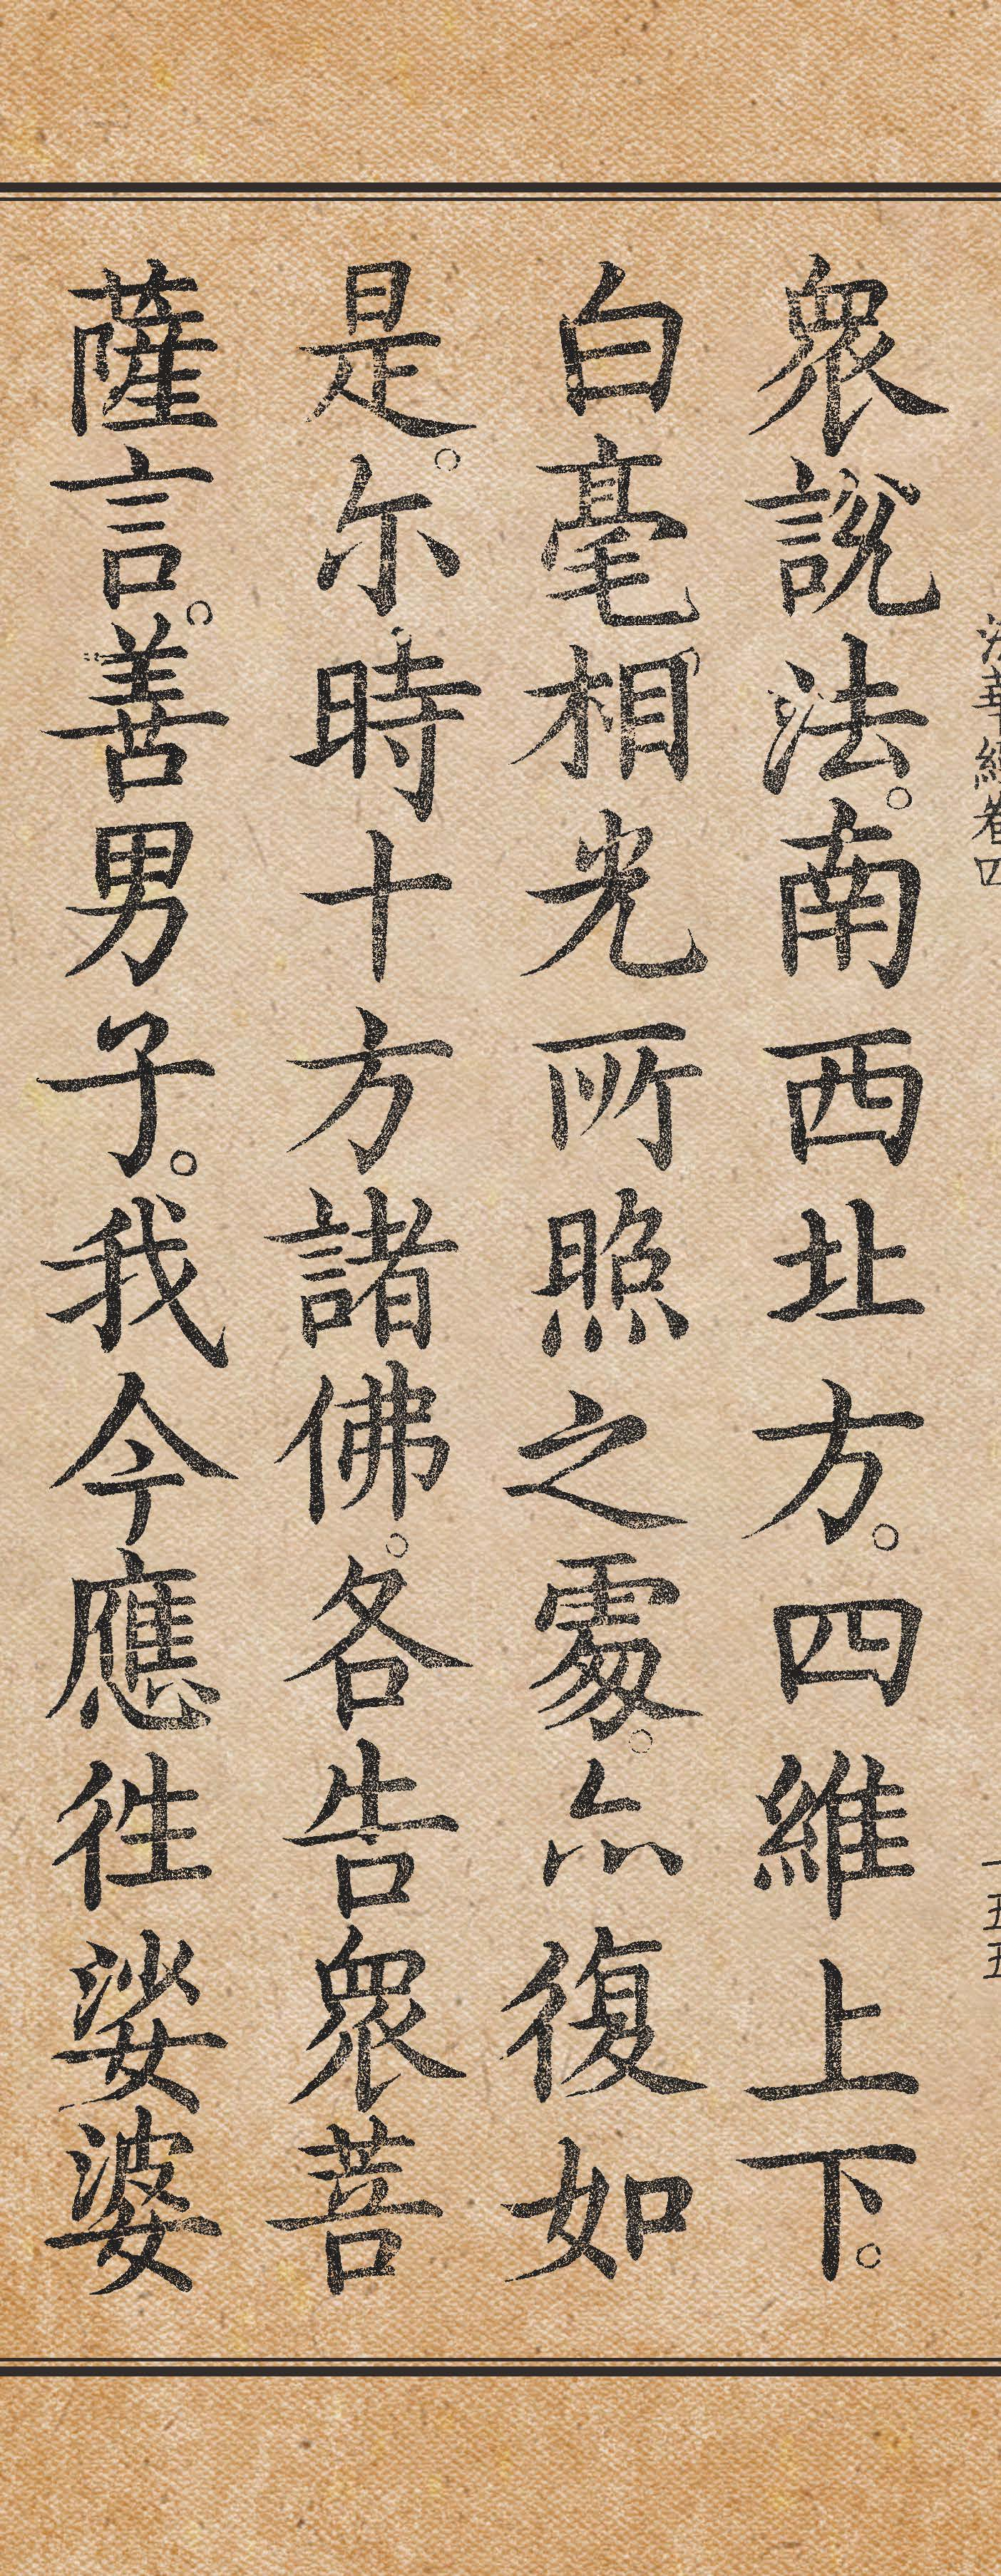 法華經卷四
一五五
衆說法。南西北方。四維上下。
白毫相光所照之處。亦復如
是。尒時十方諸佛。各告衆菩
薩言。善男子。我今應徃娑婆